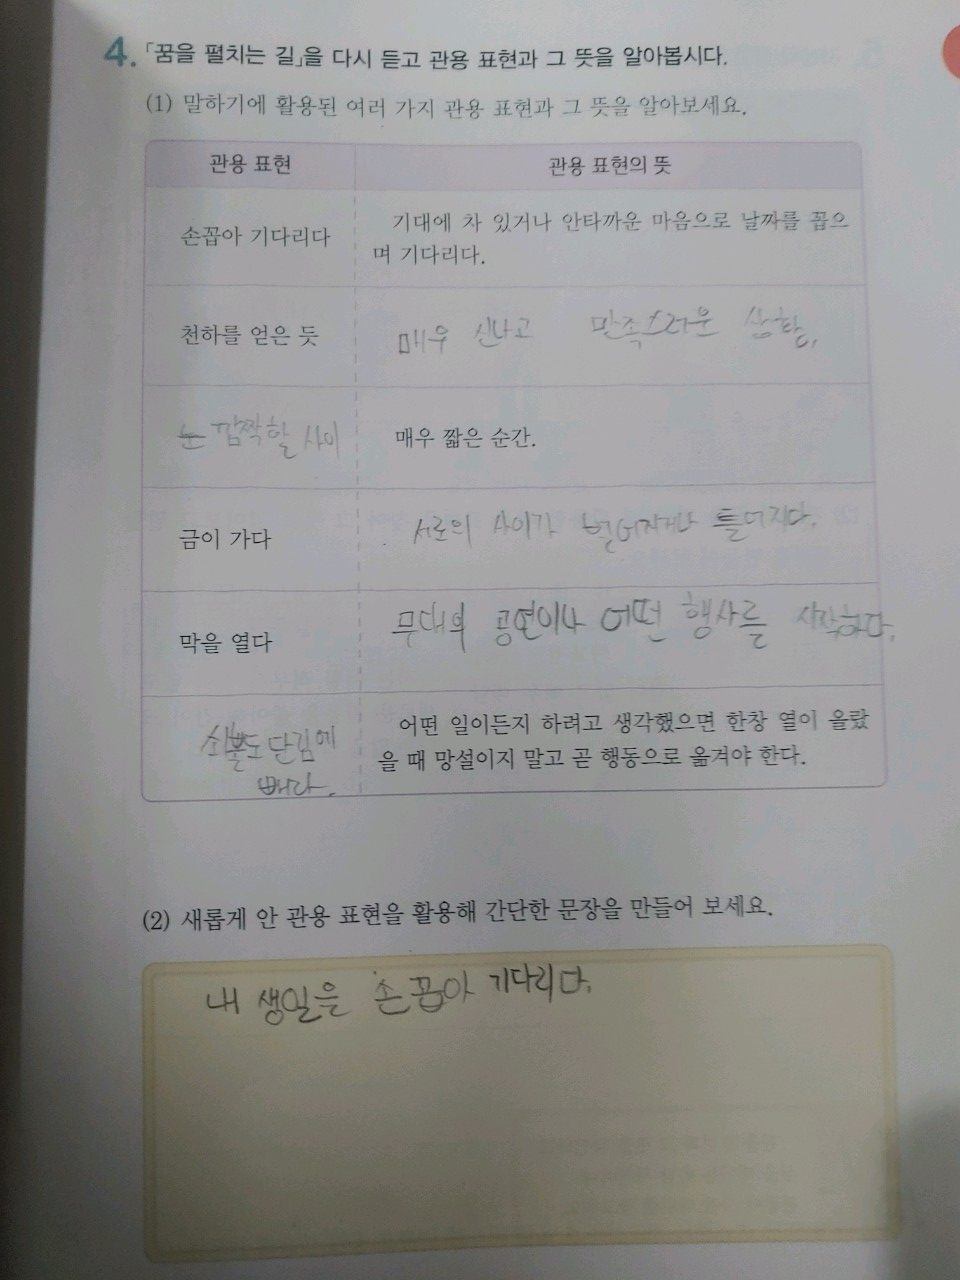 4. 「꿈을 펼치는 길」을 다시 듣고 관용 표현과 그 뜻을 알아봅시다.
(1) 말하기에 활용된 여러 가지 관용 표현과 그 뜻을 알아보세요.
관용 표현 관용 표현의 뜻
손꼽아 기다리다
기대에 차 있거나 안타까운 마음으로 날짜를 꼽으
며 기다리다.
천하를 얻은 듯 매우 신나고 만족스러운 상황.
눈 깜짝할 사이 매우 짧은 순간.
금이 가다 서로의 사이가 벌어지거나 틀어지다.
막을 열다 무대의 공연이나 어떤 행사를 시작하다.
쇠뿔도 단김에
빼라.
어떤 일이든지 하려고 생각했으면 한창 열이 올랐
을 때 망설이지 말고 곧 행동으로 옮겨야 한다.
(2) 새롭게 안 관용 표현을 활용해 간단한 문장을 만들어 보세요.
내 생일을 손꼽아 기다리다.